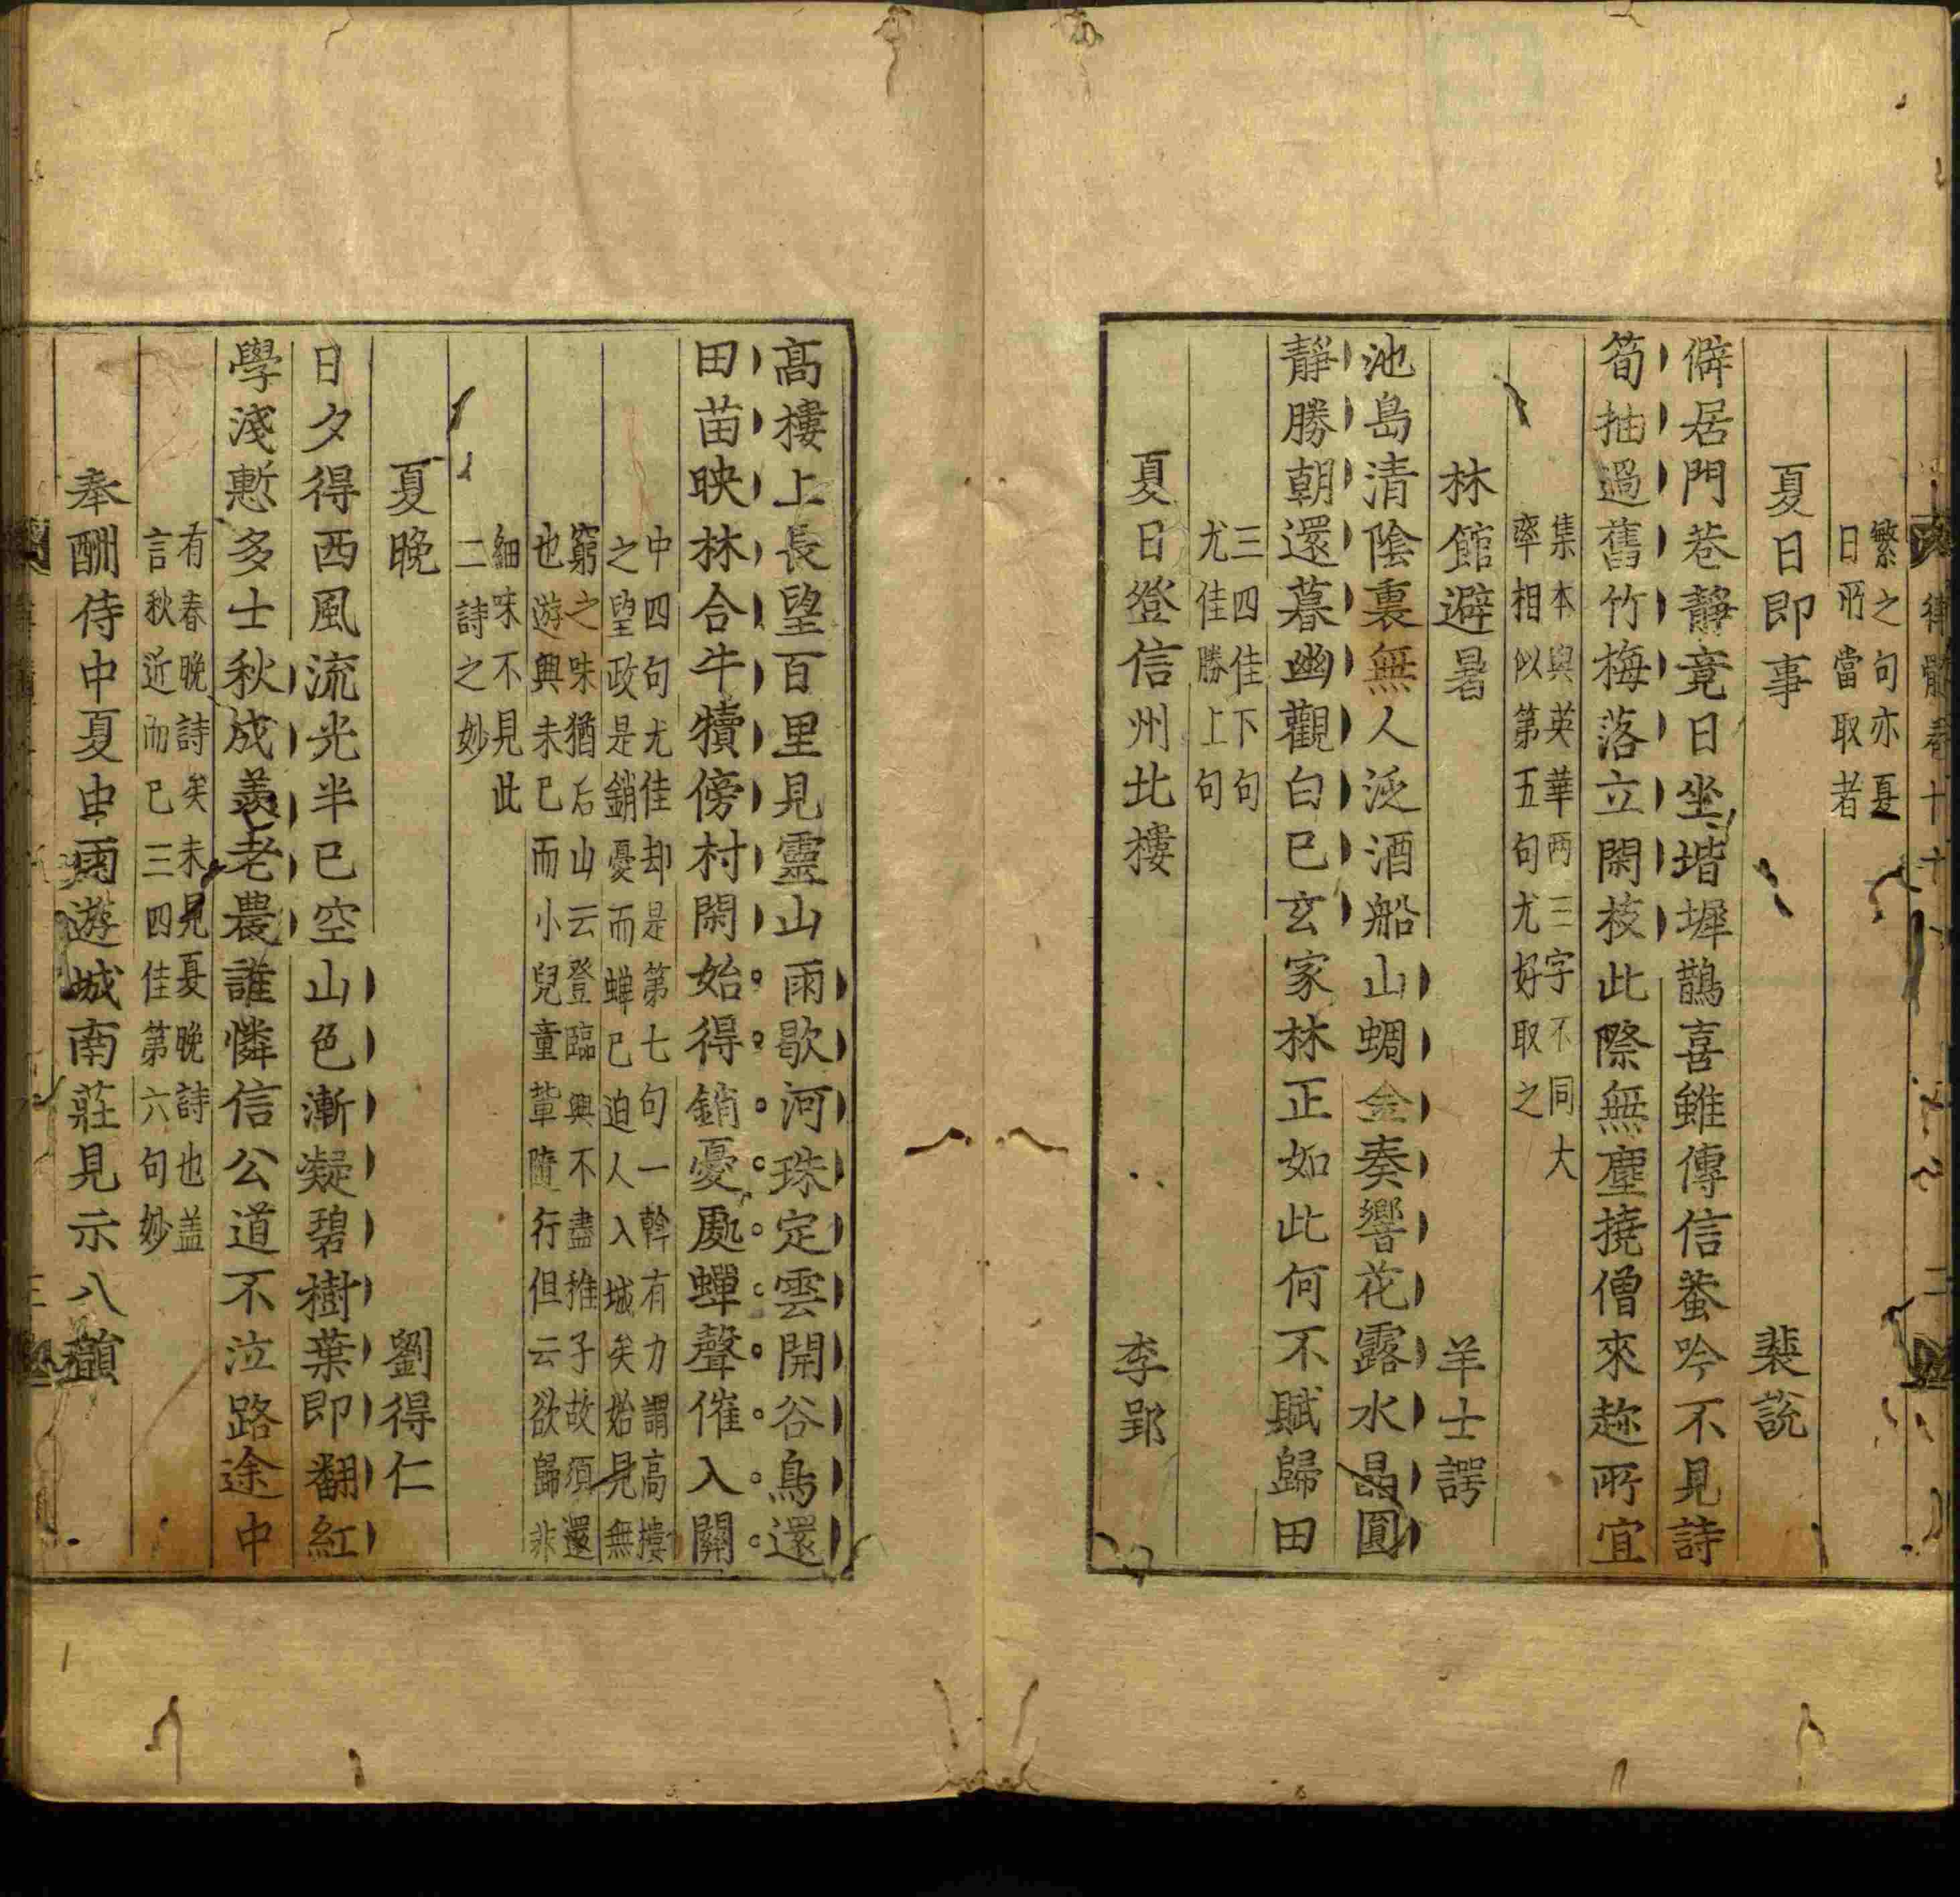 律髓卷十
繁之句亦夏
日所當取者
夏日即事 裴說
僻居門巷靜竟日坐堦墀鵲喜雖傳信蛬吟不見詩
筍抽過舊竹梅落立閑枝此際無塵撓僧來趂所宜
集本與英華两三字不同大
率相似第五句尤好取之
林館避暑 羊士諤
池島清陰裏無人泛酒船山蜩金奏響花露水晶圓
靜勝朝還暮幽觀白已玄家林正如此何不賦歸田
三四佳下句
尤佳勝上句
夏日登信州北樓 李郢
高樓上長望百里見靈山雨歇河珠定雲開谷鳥還
田苗映林合牛犢傍村閑始得銷憂處蟬聲催入關
中四句尤佳却是第七句一斡有力謂高樓
之望政是銷憂而蟬已迫人入城矣始見無
窮之味猶后山云登臨興不盡推子故須還
也遊興未已而小兒童軰隨行但云欲歸非
細味不見此
二詩之妙
夏晚 劉得仁
日夕得西風流光半已空山色漸凝碧樹葉即翻紅
學淺慙多士秋成羨老農誰憐信公道不泣路途中
有春晚詩矣未見夏晚詩也盖
言秋近而已三四佳第六句妙
奉酬侍中夏中雨遊城南莊見示八韻